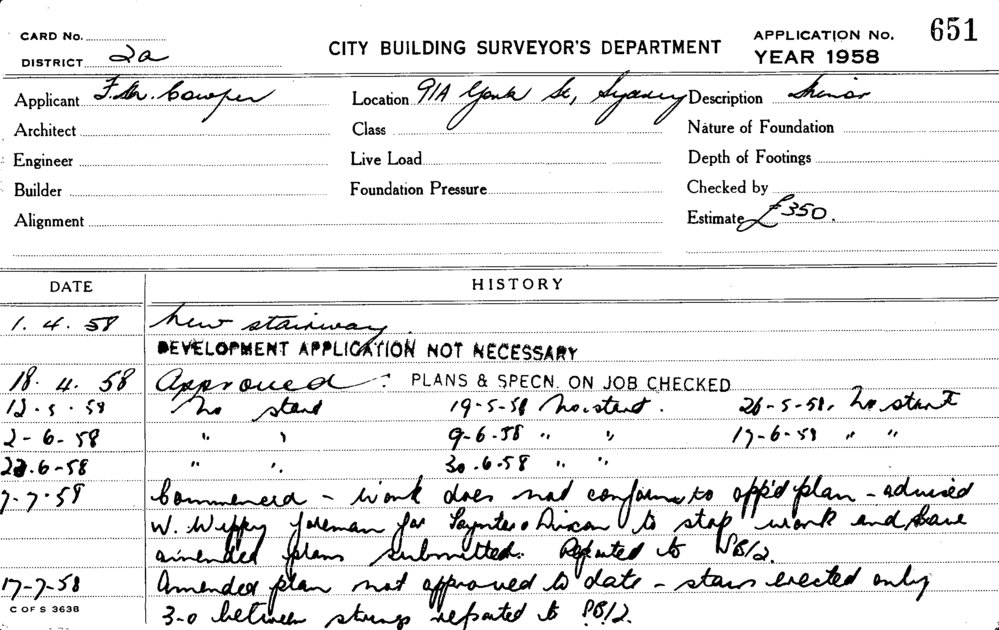 CARD No.
DISTRICT 2a
CITY BUILDING SURVEYOR'S DEPARTMENT
APPLICATION No. 651
YEAR 1958
Applicant Cowper Location 91A York St, Sydney Description Minor
Architect Class Nature of Foundation
Engineer Live Load Depth of Footings
Builder Foundation Pressure Checked by
Alignment Estimate £350.
DATE HISTORY
1. 4. 58 New stairway.
DEVELOPMENT APPLICATION NOT NECESSARY
18. 4. 58 Approved : PLANS & SPECN. ON JOB CHECKED
12-5-58 No start 19-5-58 No start. 26-5-58. No start
2-6-58 " " 9-6-58 " " 17-6-58 " "
23.6-58 " " 30.6.58 " "
7-7-58 Commenced - work does not conform to app'd plan - advised
W. foreman for Paynter & Dixon to stop work and have
amended plans submitted. Reported to
17-7-58 Amended plan not approved to date - stairs erected only
C OF S 3638 3-0 between strings reported to